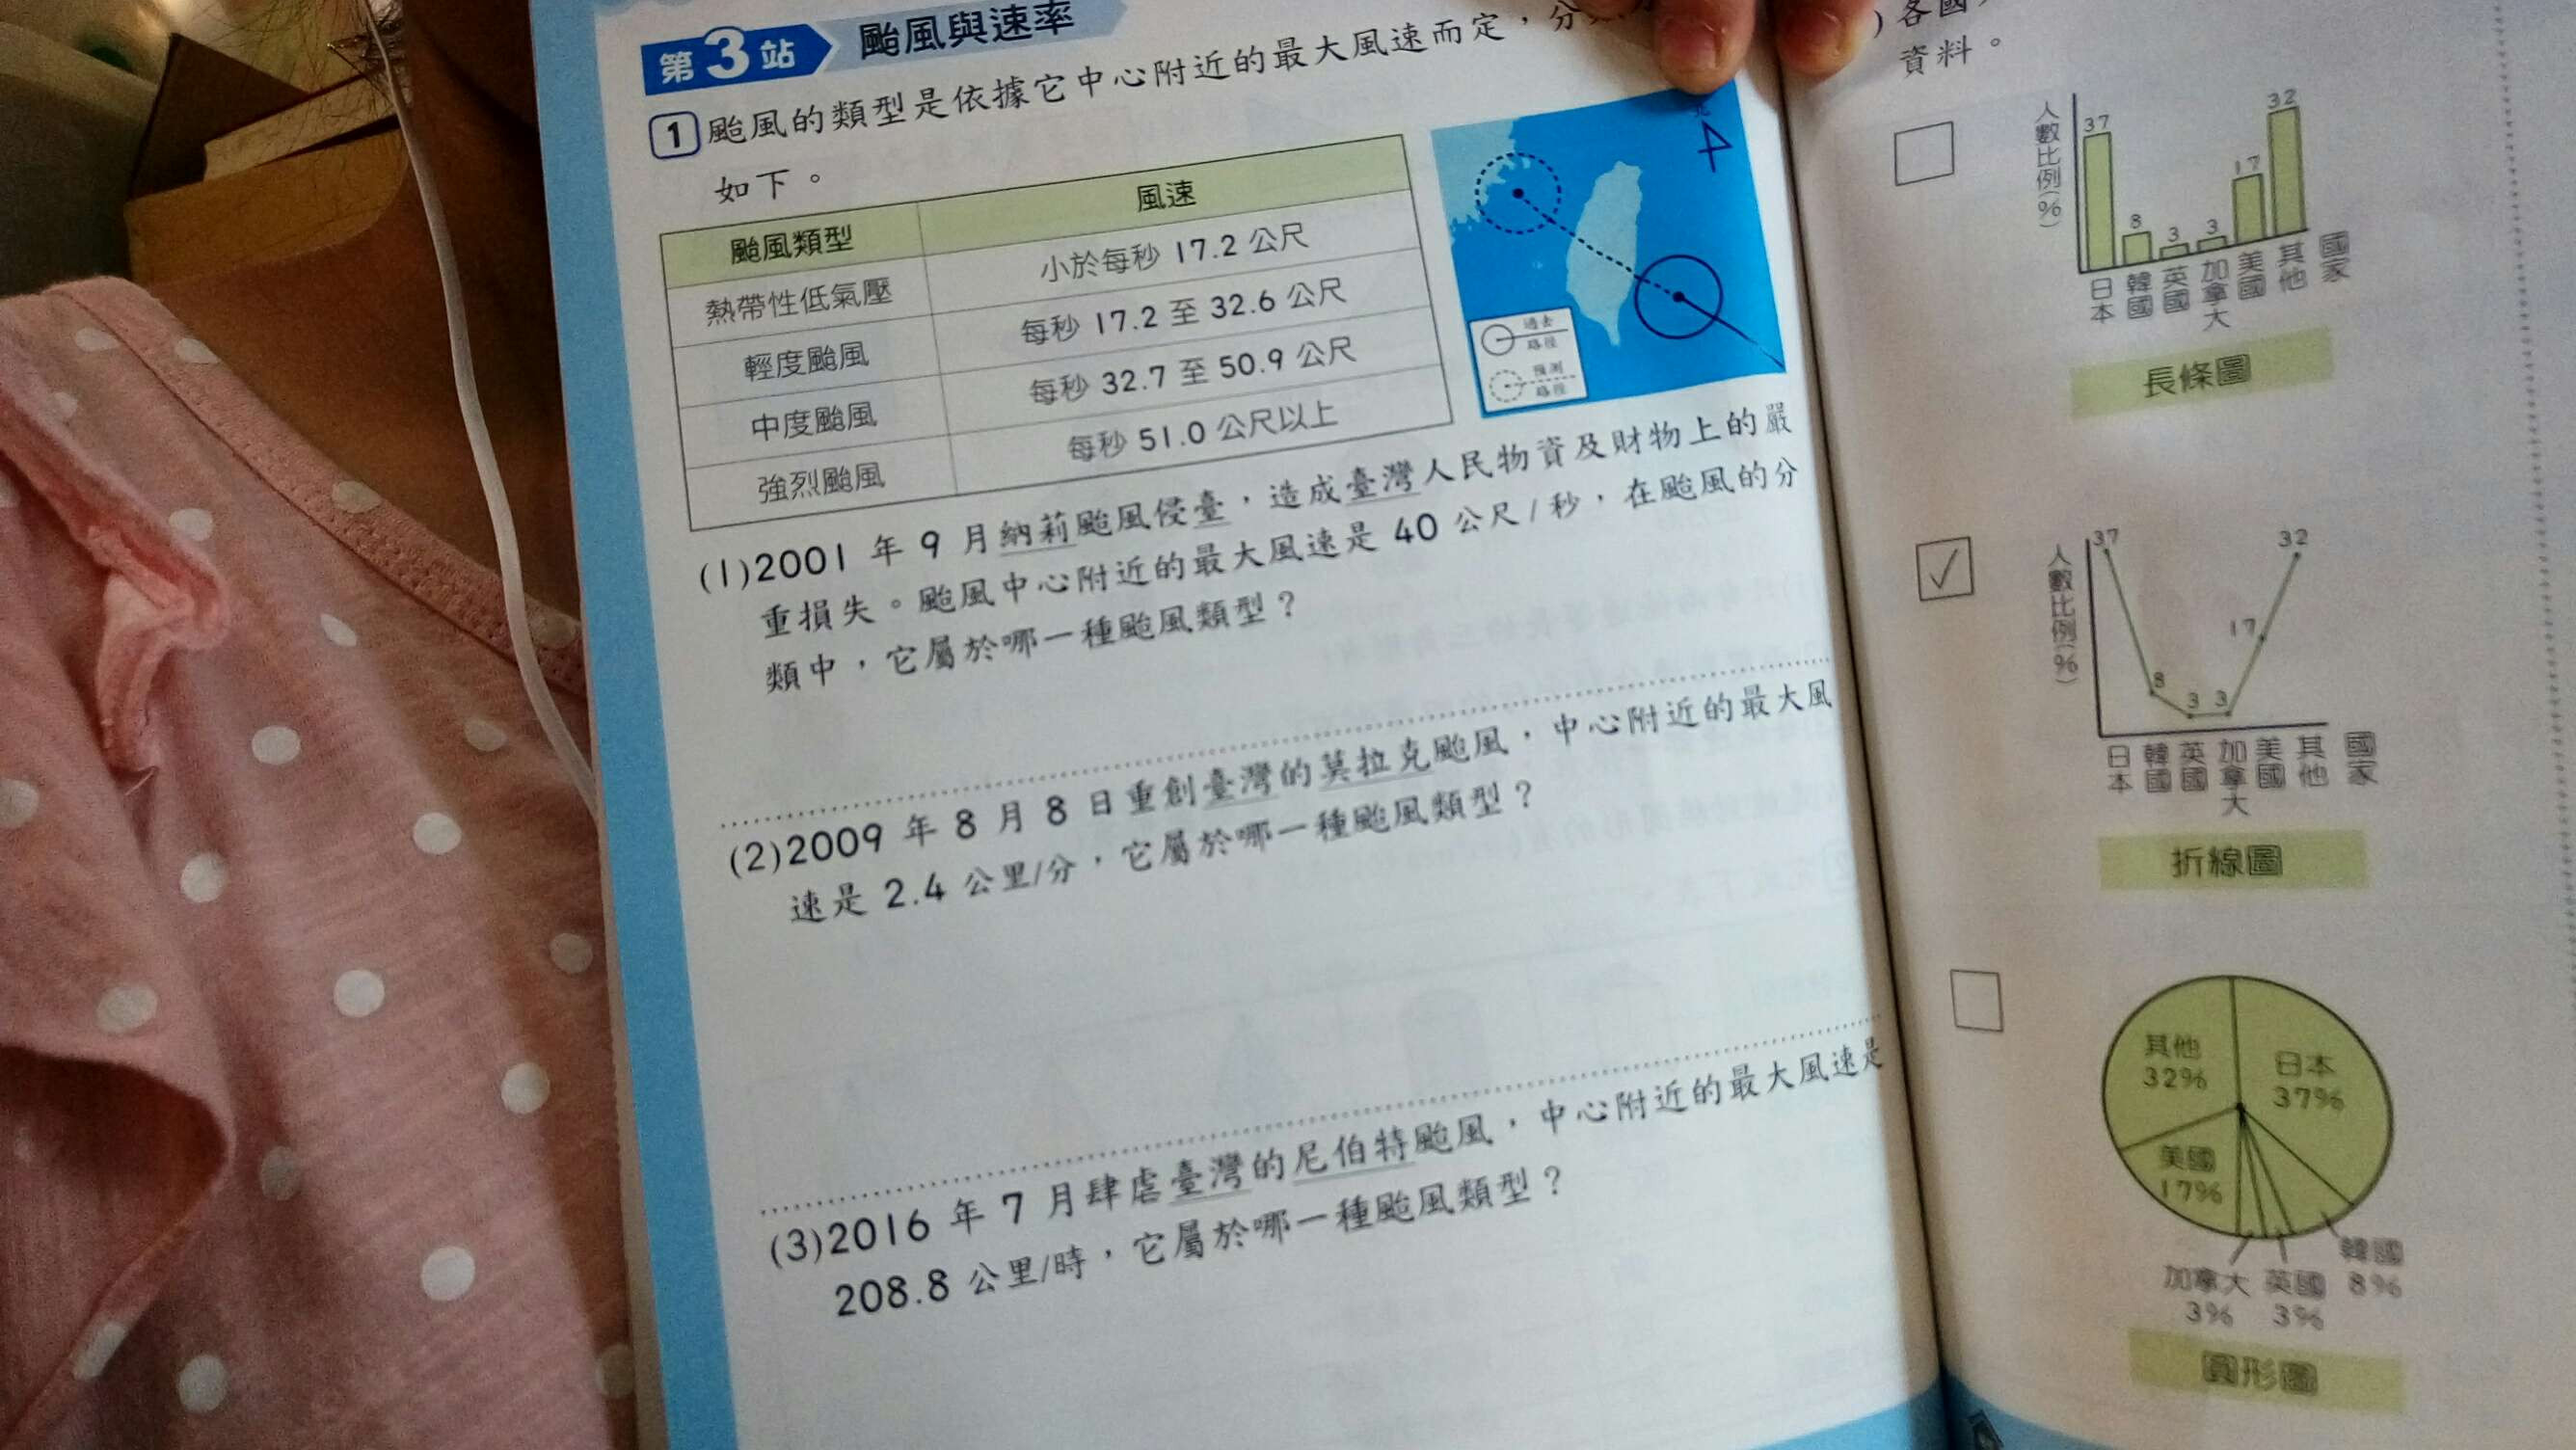 第3站 颱風與速率
1 颱風的類型是依據它中心附近的最大風速而定，分
如下。
颱風類型 風速
熱帶性低氣壓 小於每秒 17.2 公尺
輕度颱風 每秒 17.2 至 32.6 公尺
中度颱風 每秒 32.7 至 50.9 公尺
強烈颱風 每秒 51.0 公尺以上
過去
路徑
預測
路徑
(1)2001 年 9 月納莉颱風侵臺，造成臺灣人民物資及財物上的嚴
重損失。颱風中心附近的最大風速是 40 公尺/秒，在颱風的分
類中，它屬於哪一種颱風類型？
(2)2009 年 8 月 8 日重創臺灣的莫拉克颱風，中心附近的最大風
速是 2.4 公里/分，它屬於哪一種颱風類型？
(3)2016 年 7 月肆虐臺灣的尼伯特颱風，中心附近的最大風速是
208.8 公里/時，它屬於哪一種颱風類型？
)各國
資料。
人數比例(%)
37 8 3 3 17 32
日本 韓國 英國 加拿大 美國 其他 國家
長條圖
人數比例(%)
37 8 3 3 17 32
日本 韓國 英國 加拿大 美國 其他 國家
折線圖
其他
32%
日本
37%
美國
17%
加拿大
3%
英國
3%
韓國
8%
圓形圖